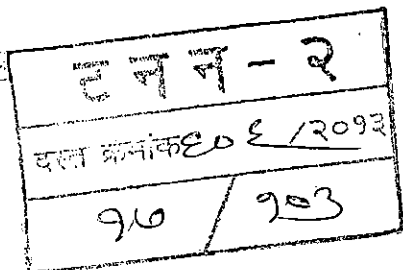 ट न न - २
दस्त क्रमांक ६०६ /२०१२
१७ / १०३